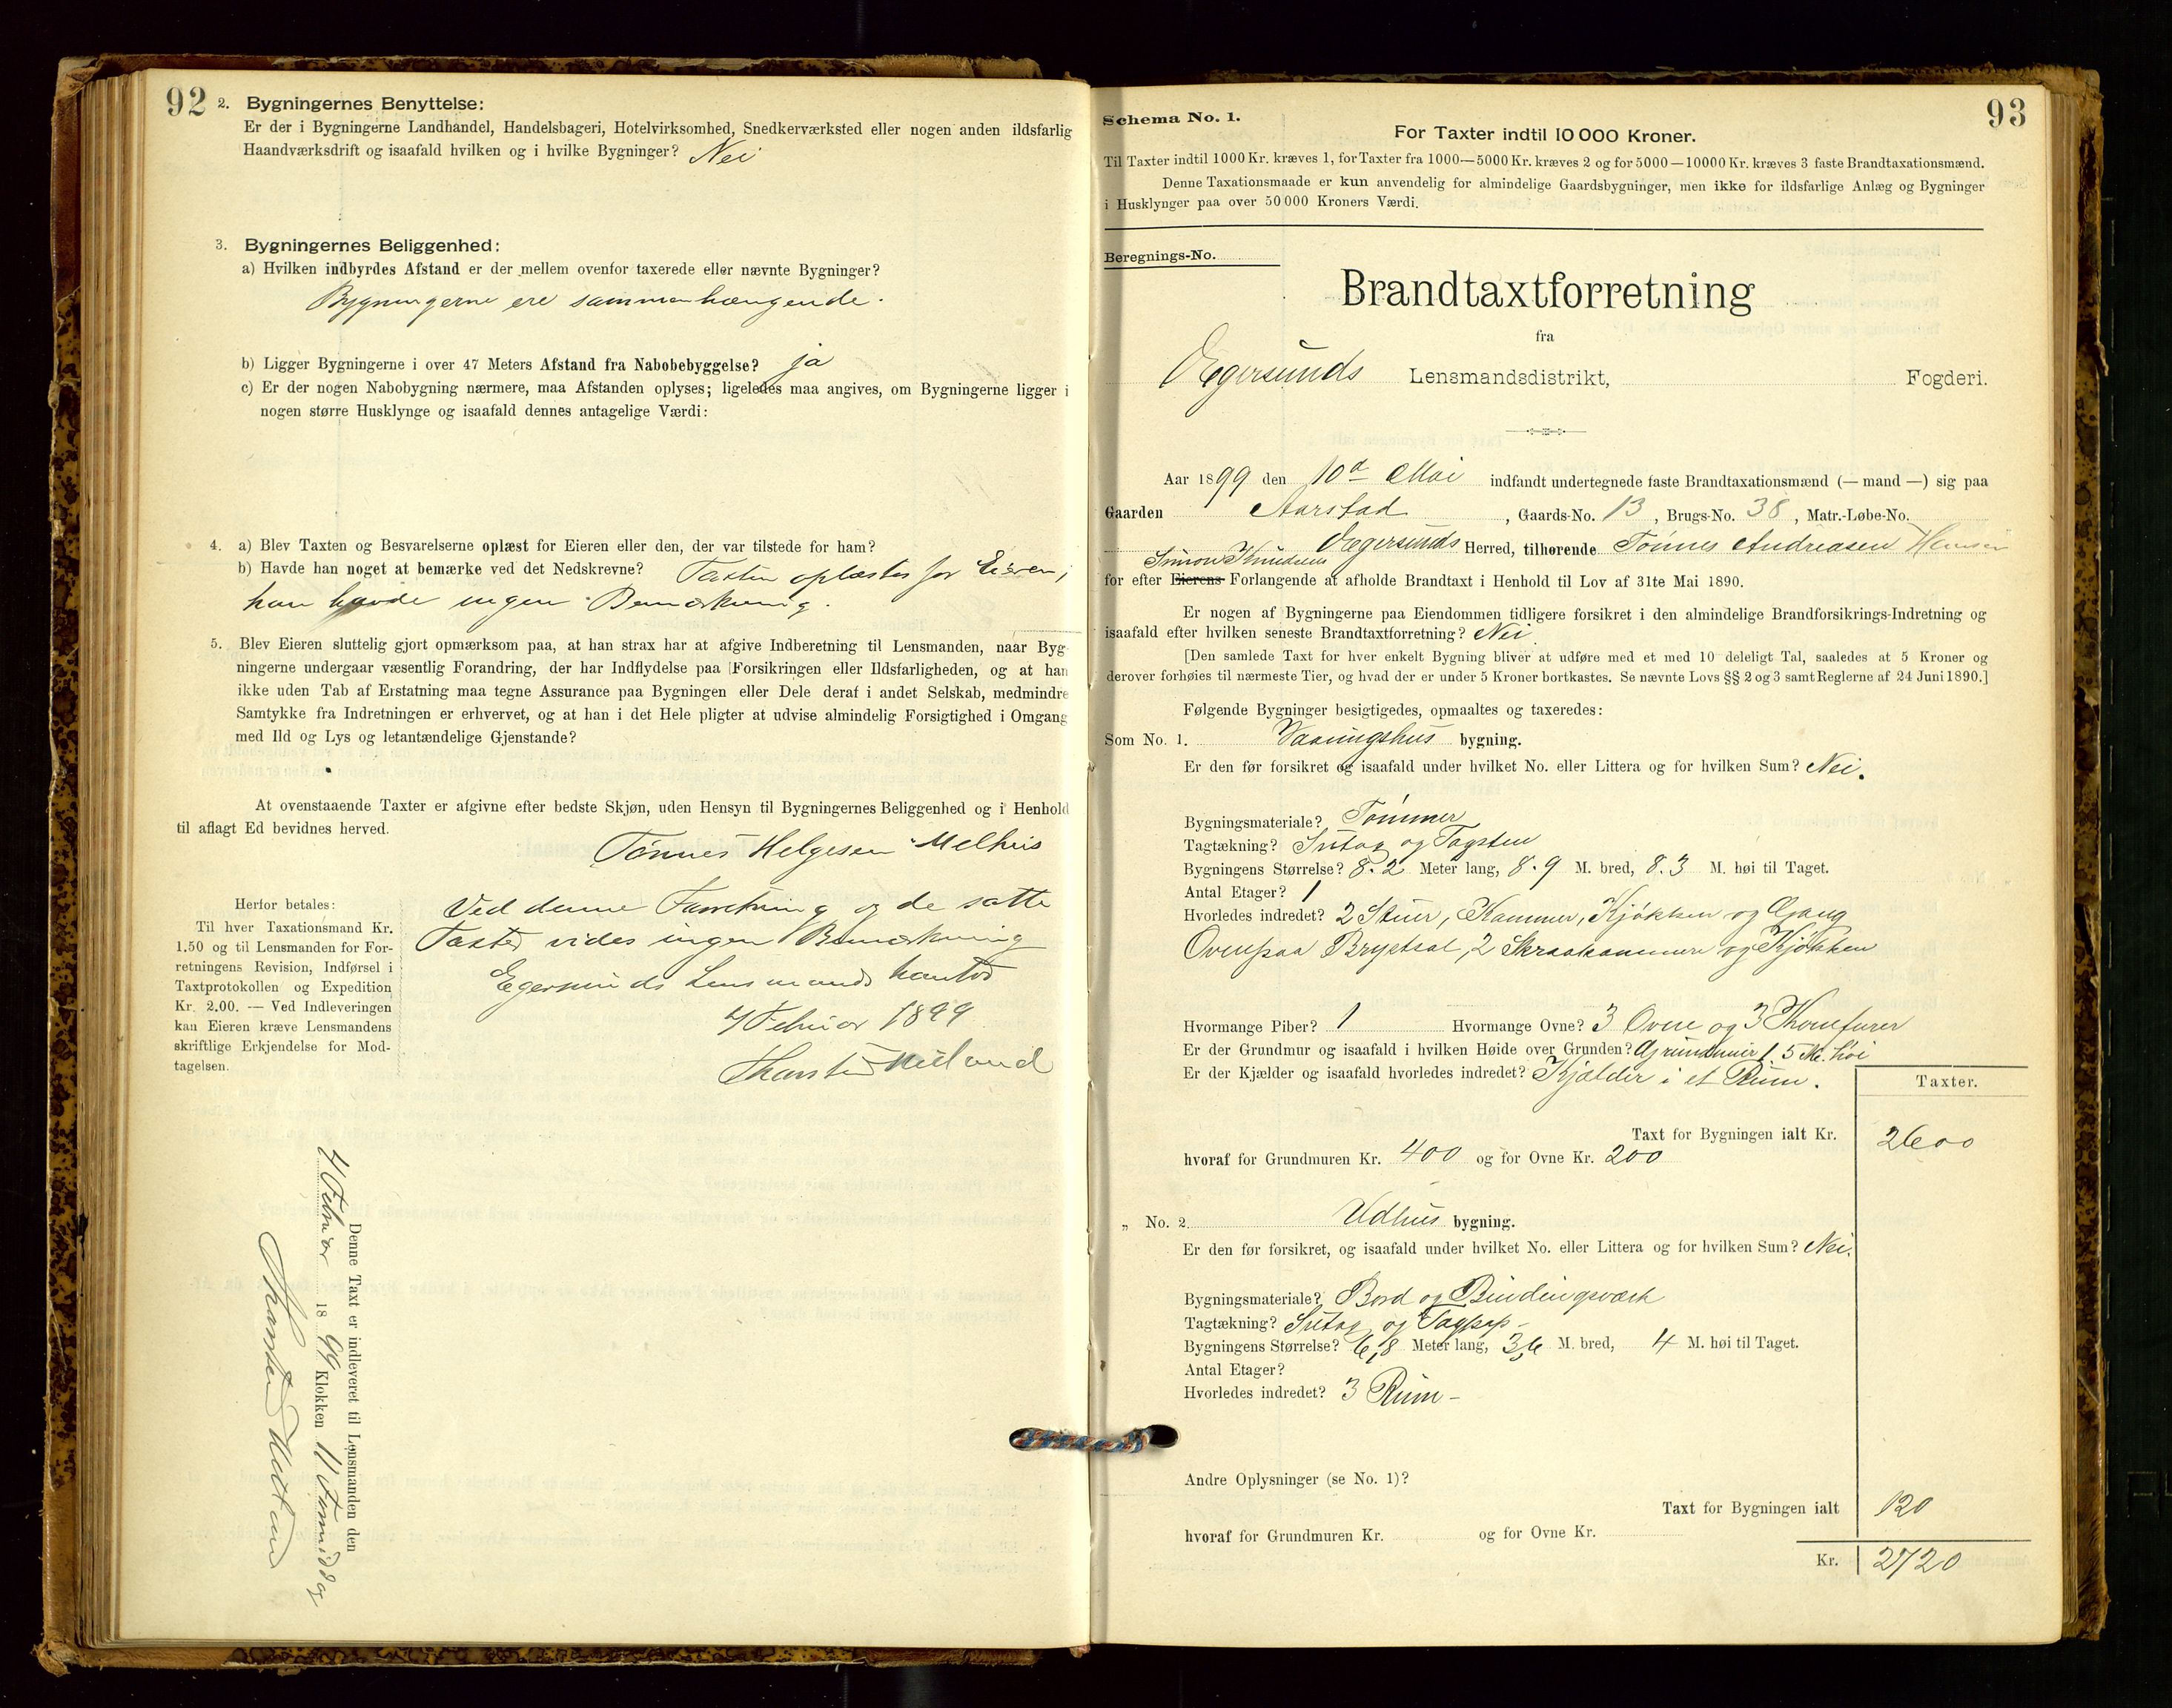 92
2. Bygningernes Benyttelse:
Er der i Bygningerne Landhandel, Handelsbageri, Hotelvirksomhed, Snedkerværksted eller nogen anden ildsfarlig
Haandværksdrift og isaafald hvilken og i hvilke Bygninger? Nei
3. Bygningernes Beliggenhed:
a) Hvilken indbyrdes Afstand er der mellem ovenfor taxerede eller nævnte Bygninger?
Bygningerne ere sammenhængende.
b) Ligger Bygningerne i over 47 Meters Afstand fra Nabobebyggelse? ja
c) Er der nogen Nabobygning nærmere, maa Afstanden oplyses; ligeledes maa angives, om Bygningerne ligger i
nogen større Husklynge og isaafald dennes antagelige Værdi:
4. a) Blev Taxten og Besvarelserne oplæst for Eieren eller den, der var tilstede for ham?
b) Havde han noget at bemærke ved det Nedskrevne? Taxten oplæstes for Eieren,
han havde ingen Bemærkning.
5. Blev Eieren sluttelig gjort opmærksom paa, at han strax har at afgive Indberetning til Lensmanden, naar Byg-
ningerne undergaar væsentlig Forandring, der har Indflydelse paa Forsikringen eller Ildsfarligheden, og at han
ikke uden Tab af Erstatning maa tegne Assurance paa Bygningen eller Dele deraf i andet Selskab, medmindre
Samtykke fra Indretningen er erhvervet, og at han i det Hele pligter at udvise almindelig Forsigtighed i Omgang
med Ild og Lys og letantændelige Gjenstande?
At ovenstaaende Taxter er afgivne efter bedste Skjøn, uden Hensyn til Bygningernes Beliggenhed og i Henhold
til aflagt Ed bevidnes herved.
Tønnes Helgesen Melhus
Herfor betales:
Til hver Taxationsmand Kr.
1.50 og til Lensmanden for For-
retningens Revision, Indførsel i
Taxtprotokollen og Expedition
Kr. 2.00. — Ved Indleveringen
kan Eieren kræve Lensmandens
skriftlige Erkjendelse for Mod-
tagelsen.
Ved denne Forretning og de satte
Taxter vides ingen Bemærkning
Egersunds Lensmandskontor
4 Februar 1899
Denne Taxt er indleveret til Lensmanden den
4 Februar 1899 Klokken 11 Formiddag
93
Schema No. 1.
For Taxter indtil 10 000 Kroner.
Til Taxter indtil 1000 Kr. kræves 1, for Taxter fra 1000—5000 Kr. kræves 2 og for 5000—10000 Kr. kræves 3 faste Brandtaxationsmænd.
Denne Taxationsmaade er kun anvendelig for almindelige Gaardsbygninger, men ikke for ildsfarlige Anlæg og Bygninger
i Husklynger paa over 50 000 Kroners Værdi.
Beregnings-No.
Brandtaxtforretning
fra
Egersunds Lensmandsdistrikt, Fogderi.
Aar 1899 den 10d Mai indfandt undertegnede faste Brandtaxationsmænd (— mand —) sig paa
Gaarden Aarstad, Gaards-No. 13, Brugs-No. 38, Matr.-Løbe-No.
Egersunds Herred, tilhørende Tønnes Andreasen
Simon Knudsens
for efter Eierens Forlangende at afholde Brandtaxt i Henhold til Lov af 31te Mai 1890.
Er nogen af Bygningerne paa Eiendommen tidligere forsikret i den almindelige Brandforsikrings-Indretning og
isaafald efter hvilken seneste Brandtaxtforretning? Nei
[Den samlede Taxt for hver enkelt Bygning bliver at udføre med et med 10 deleligt Tal, saaledes at 5 Kroner og
derover forhøies til nærmeste Tier, og hvad der er under 5 Kroner bortkastes. Se nævnte Lovs §§ 2 og 3 samt Reglerne af 24 Juni 1890.]
Følgende Bygninger besigtigedes, opmaaltes og taxeredes:
Som No. 1. Vaaningshus bygning.
Er den før forsikret og isaafald under hvilket No. eller Littera og for hvilken Sum? Nei.
Bygningsmateriale? Tømmer
Tagtækning? Sutag og Tagsten
Bygningens Størrelse? 8.2 Meter lang, 8.9 M. bred, 8.3 M. høi til Taget.
Antal Etager? 1
Hvorledes indredet? 2 Stuer, Kammer, Kjøkken og Gang
Ovenpaa Brystsal, 2 Skraakammere og Kjøkken
Hvormange Piber? 1 Hvormange Ovne? 3 Ovne og 3 Komfurer
Er der Grundmur og isaafald i hvilken Høide over Grunden? Grundmur 1.5 M. høi
Er der Kjælder og isaafald hvorledes indredet? Kjælder i et Rum.
Taxter.
Taxt for Bygningen ialt Kr. 2600
hvoraf for Grundmuren Kr. 400 og for Ovne Kr. 200
„ No. 2 Udhus bygning.
Er den før forsikret, og isaafald under hvilket No. eller Littera og for hvilken Sum? Nei.
Bygningsmateriale? Bord og Bindingsværk
Tagtækning? Sutag og Tagpap -
Bygningens Størrelse? 6,8 Meter lang, 3,6 M. bred, 4 M. høi til Taget.
Antal Etager?
Hvorledes indredet? 3 Rum -
Andre Oplysninger (se No. 1)?
Taxt for Bygningen ialt 120
hvoraf for Grundmuren Kr. og for Ovne Kr.
Kr. 2720